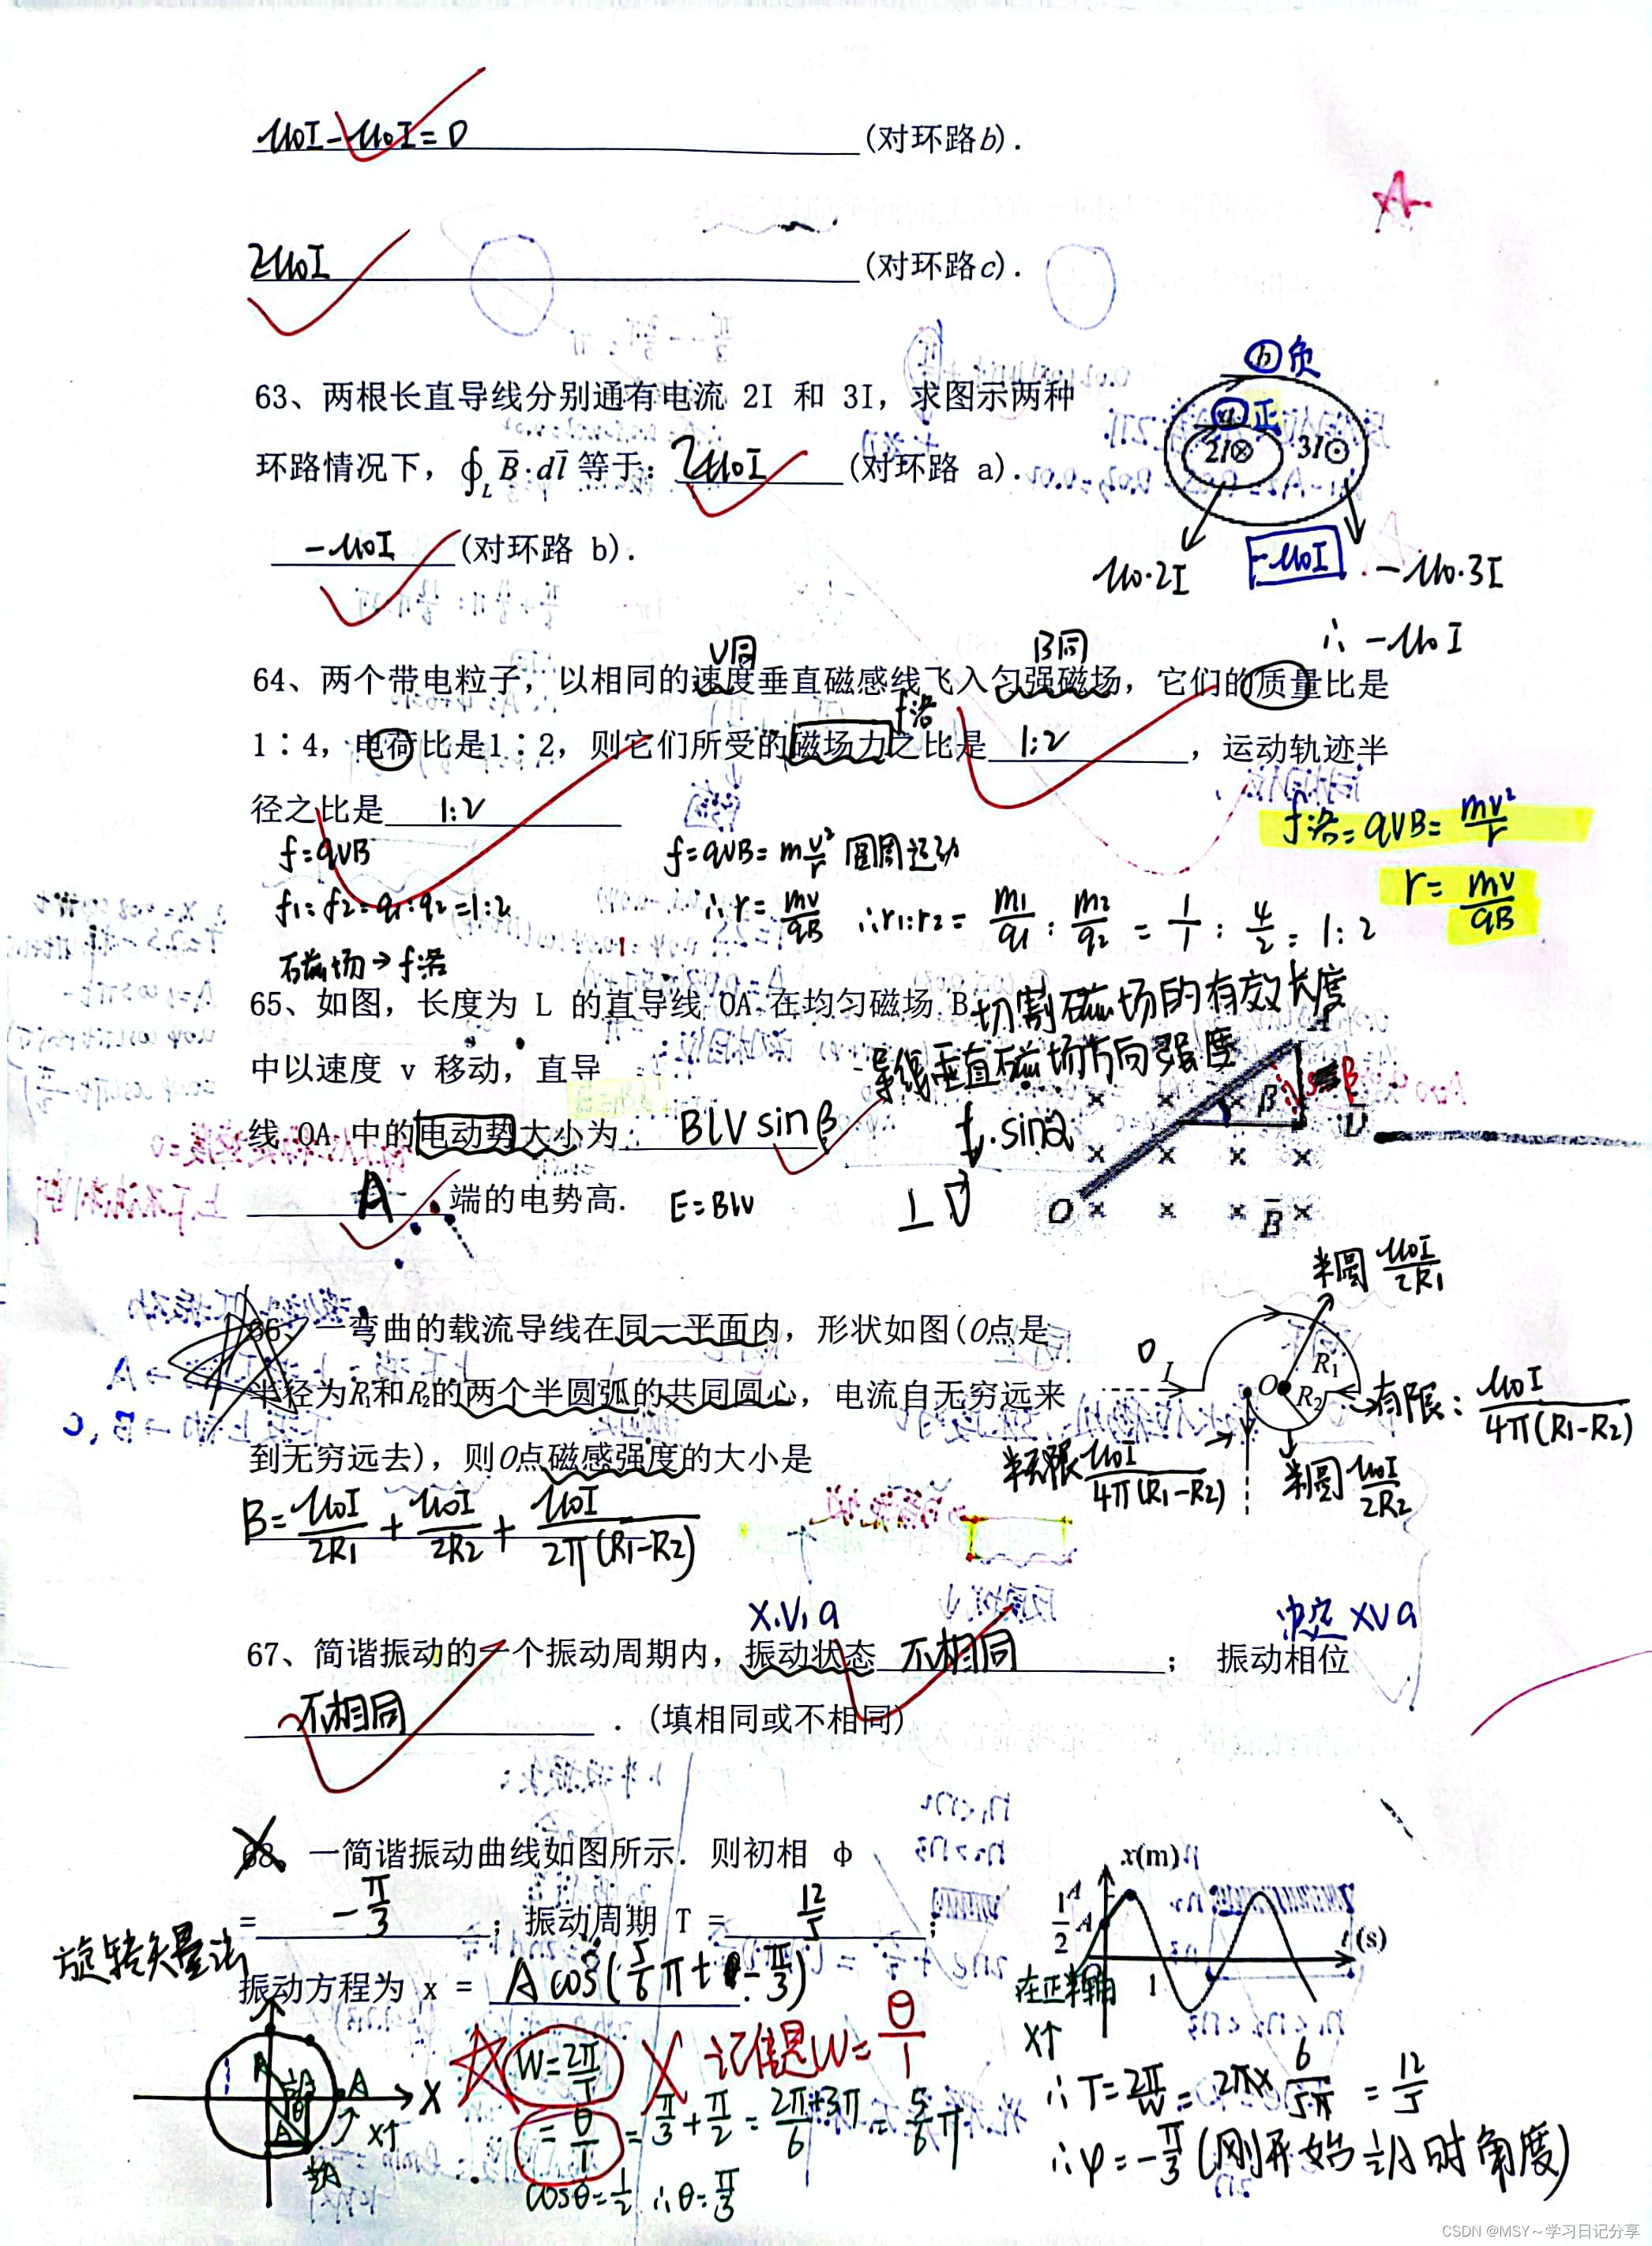 μ₀I-μ₀I=0 (对环路b).
A
2μ₀I (对环路c).
63、两根长直导线分别通有电流 2I 和 3I，求图示两种
环路情况下，∮_L B̄·dl̄ 等于：2μ₀I (对环路 a).
-μ₀I (对环路 b).
b 负
a 正
2I⊗ 3I⊙
μ₀·2I -μ₀I -μ₀·3I
∴ -μ₀I
V同 B同
64、两个带电粒子，以相同的速度垂直磁感线飞入匀强磁场，它们的质量比是
f洛
1∶4，电荷比是1∶2，则它们所受的磁场力之比是 1:2 ，运动轨迹半
径之比是 1:2
f洛=qVB=mv²/r
r=mv/qB
f=qVB
f1:f2=q1:q2=1:2
磁场→f洛
f=qVB=mv²/r 圆周运动
∴r=mv/qB ∴r1:r2=m1/q1:m2/q2=1/1:4/2=1:2
65、如图，长度为 L 的直导线 OA 在均匀磁场 B
切割磁场的有效长度
中以速度 v 移动，直导
导线垂直磁场方向强度
线 OA 中的电动势大小为 BLVsinβ
L·sinα
A 端的电势高.
E=BLV
⊥ v̄
A
β
β
v̄
O B̄
66、一弯曲的载流导线在同一平面内，形状如图(O点是
半径为R₁和R₂的两个半圆弧的共同圆心，电流自无穷远来
到无穷远去)，则O点磁感强度的大小是
B=μ₀I/2R1+μ₀I/2R2+μ₀I/2π(R1-R2)
半圆 μ₀I/2R1
0
I
R₁
O R₂
有限：μ₀I/4π(R1-R2)
半无限 μ₀I/4π(R1-R2)
半圆 μ₀I/2R2
X.V.a
决定 XVa
67、简谐振动的一个振动周期内，振动状态 不相同 ； 振动相位
不相同 .(填相同或不相同)
68、一简谐振动曲线如图所示．则初相 φ
= -π/3 ；振动周期 T = 12/5 ；
振动方程为 x = Acos(5/6πt-π/3)
旋转矢量法
x(m)
A
1/2 A
1
t(s)
在正半轴
X↑
W=2π/T
记住是W=θ/T
=θ/T=π/3+π/2=2π+3π/6=5/6π
cosθ=1/2 ∴θ=π/3
∴T=2π/W=2π×6/5π=12/5
∴φ=-π/3(刚开始½A时角度)
X
A
X↑
½A
CSDN @MSY～学习日记分享